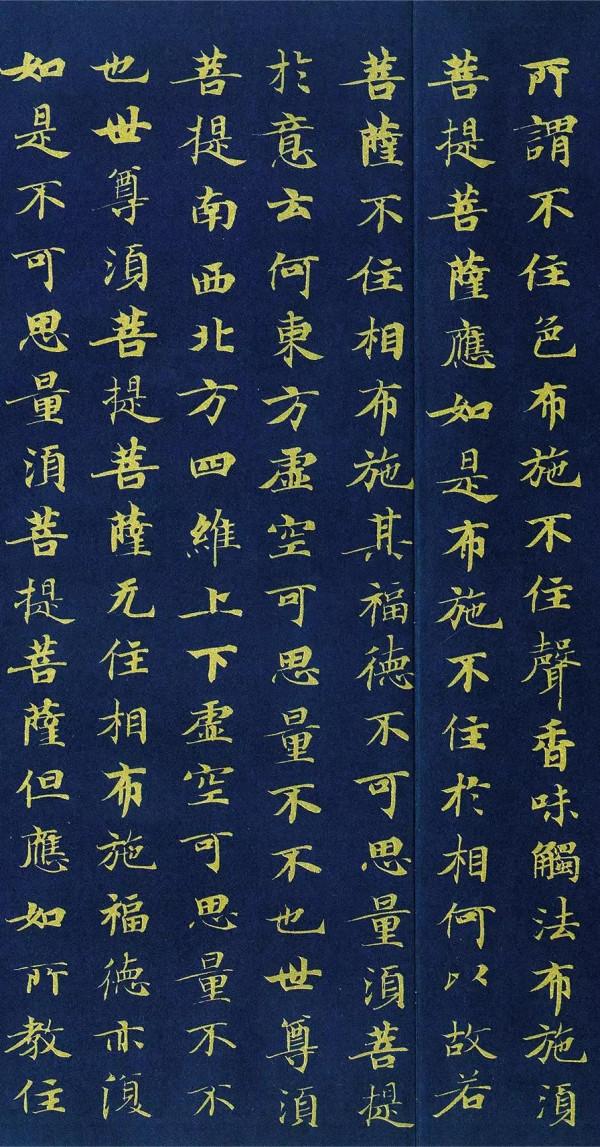 所謂不住色布施不住聲香味觸法布施須
菩提菩薩應如是布施不住於相何以故若
菩薩不住相布施其福德不可思量須菩提
於意云何東方虛空可思量不不也世尊須
菩提南西北方四維上下虛空可思量不不
也世尊須菩提菩薩无住相布施福德亦復
如是不可思量須菩提菩薩但應如所教住